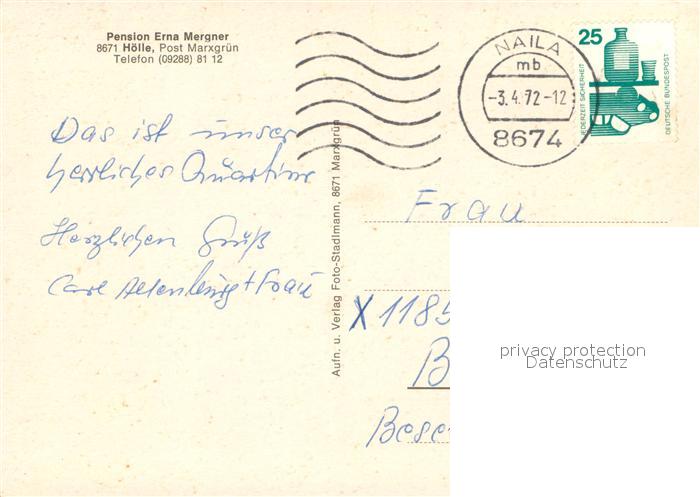 Pension Erna Mergner
8671 Hölle, Post Marxgrün
Telefon (09288) 81 12
NAILA
mb
-3.4.72-12
8674
25
JEDERZEIT SICHERHEIT
DEUTSCHE BUNDESPOST
Das ist unser
herrliches Quartier
Herzlichen Gruß
Carl Altenburg + Frau
Aufn. u. Verlag Foto-Stadlmann, 8671 Marxgrün
Frau
X 1185
B
Bese
privacy protection
Datenschutz